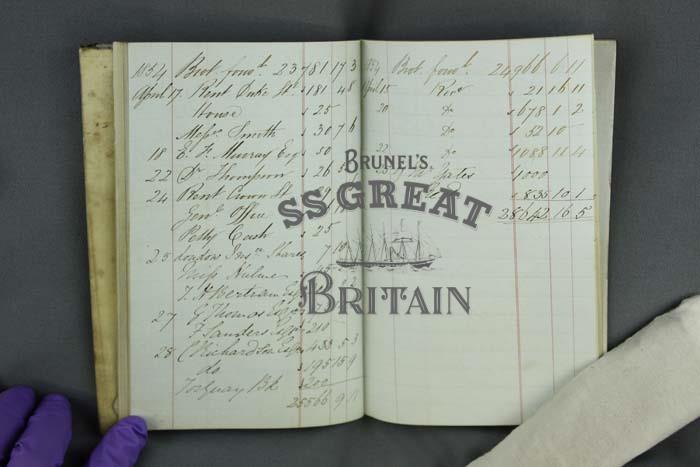 1854 Brot. fowd. 23781 17 3
April 17 Rent Duke St. 181 4 8
House 25
Messrs. Smith 307 6
18 E. F. Murray Esq 50
22 Dr. Thompson 26
24 Rent Crown St
Genl. Office
Petty Cash 25
25 London Insce. Shares 7 10
Miss Hulme
T. N. Bertram Esq
27 G Thomas Esq
F Sanders Esq 210
28 C Richardson Esq 433 5 3
do 195 15 9
Torquay Bk 200
25566 9 11
1854 Brot. fowd. 24966 6 11
April 15 21 16 11
20 do 678 1 2
do 52 10
22 do 1088 11 4
Gates 1000
835 10 1
28642 16 5
BRUNEL'S
SS GREAT
BRITAIN